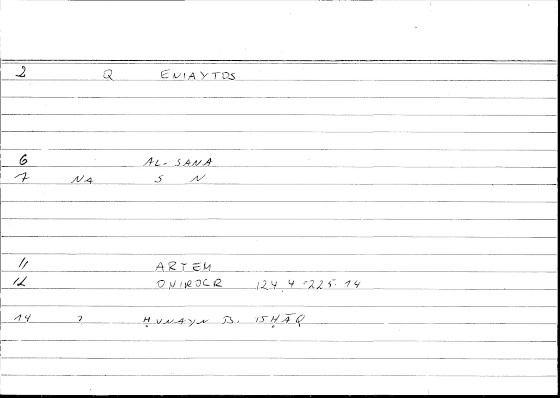 2 Q ENIAYTOS
6 AL-SANA
7 NA S N
11 ARTEM
12 ONIROCR 124,4-225.14
14 ? ḤUNAYN B. ISḤĀQ